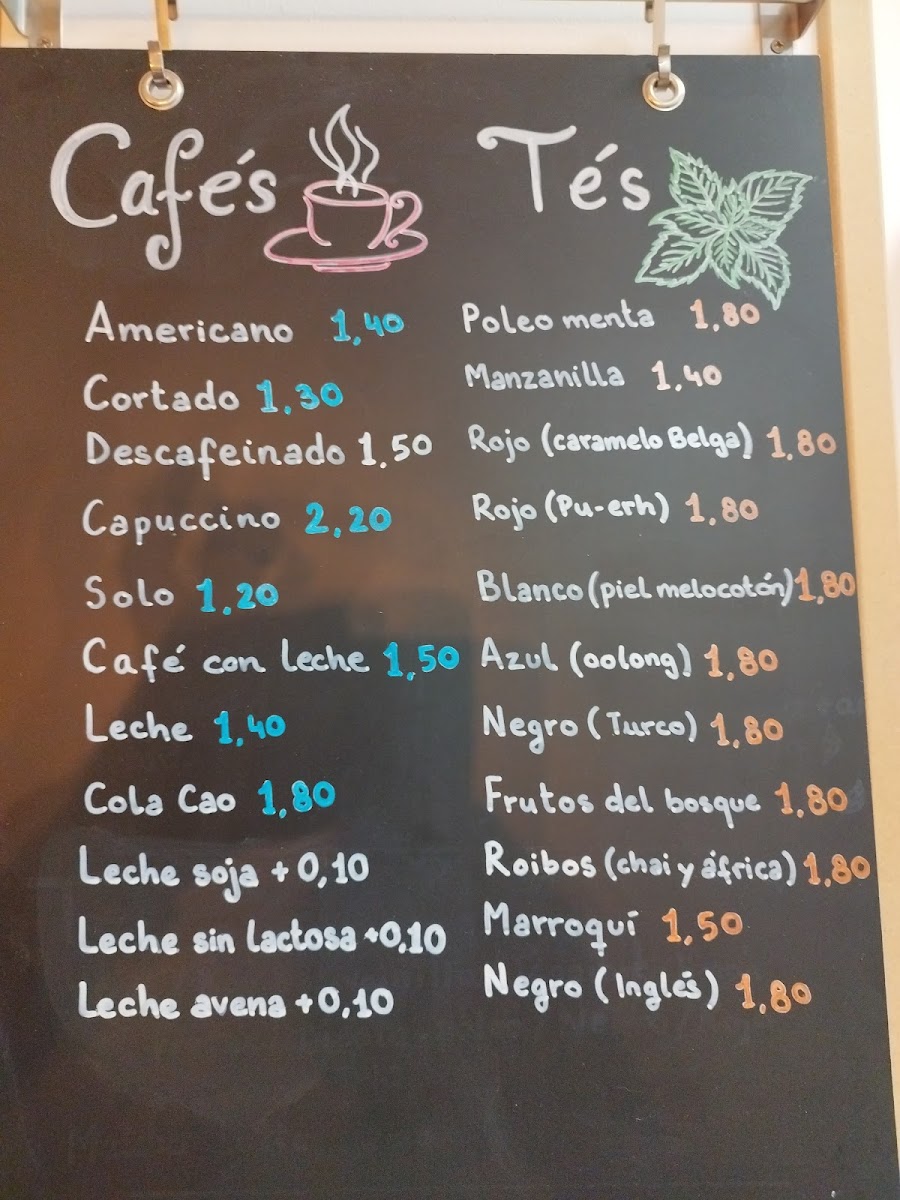 Cafés
Americano 1,40
Cortado 1,30
Descafeinado 1,50
Capuccino 2,20
Solo 1,20
Café con leche 1,50
Leche 1,40
Cola Cao 1,80
Leche soja +0,10
Leche sin lactosa +0,10
Leche avena +0,10
Tés
Poleo menta 1,80
Manzanilla 1,40
Rojo (caramelo Belga) 1,80
Rojo (Pu-erh) 1,80
Blanco (piel melocotón) 1,80
Azul (oolong) 1,80
Negro (Turco) 1,80
Frutos del bosque 1,80
Roibos (chai y áfrica) 1,80
Marroquí 1,50
Negro (Inglés) 1,80